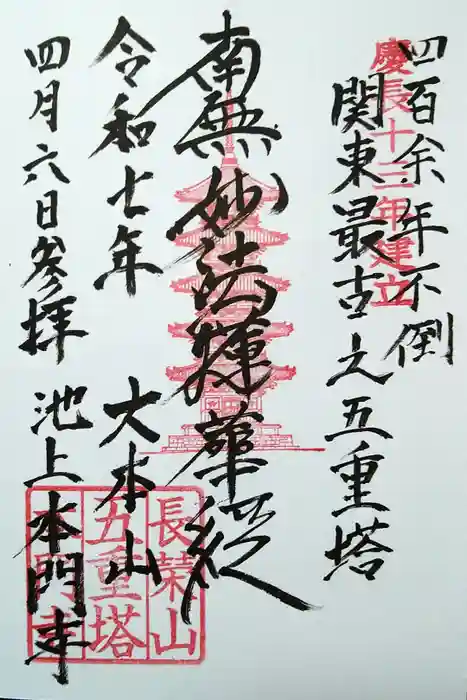 四百余年不倒
慶長十三年建立
関東最古之五重塔
南無妙法蓮華経
令和七年 大本山
四月六日参拝 池上本門寺
長榮山
五重塔
本門寺